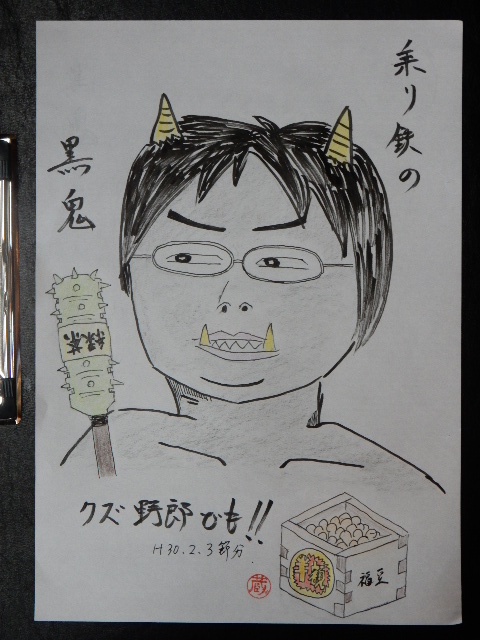 乗り鉄の
黒鬼
緑茶
クズ野郎でも!!
H30.2.3節分
福豆
蔵